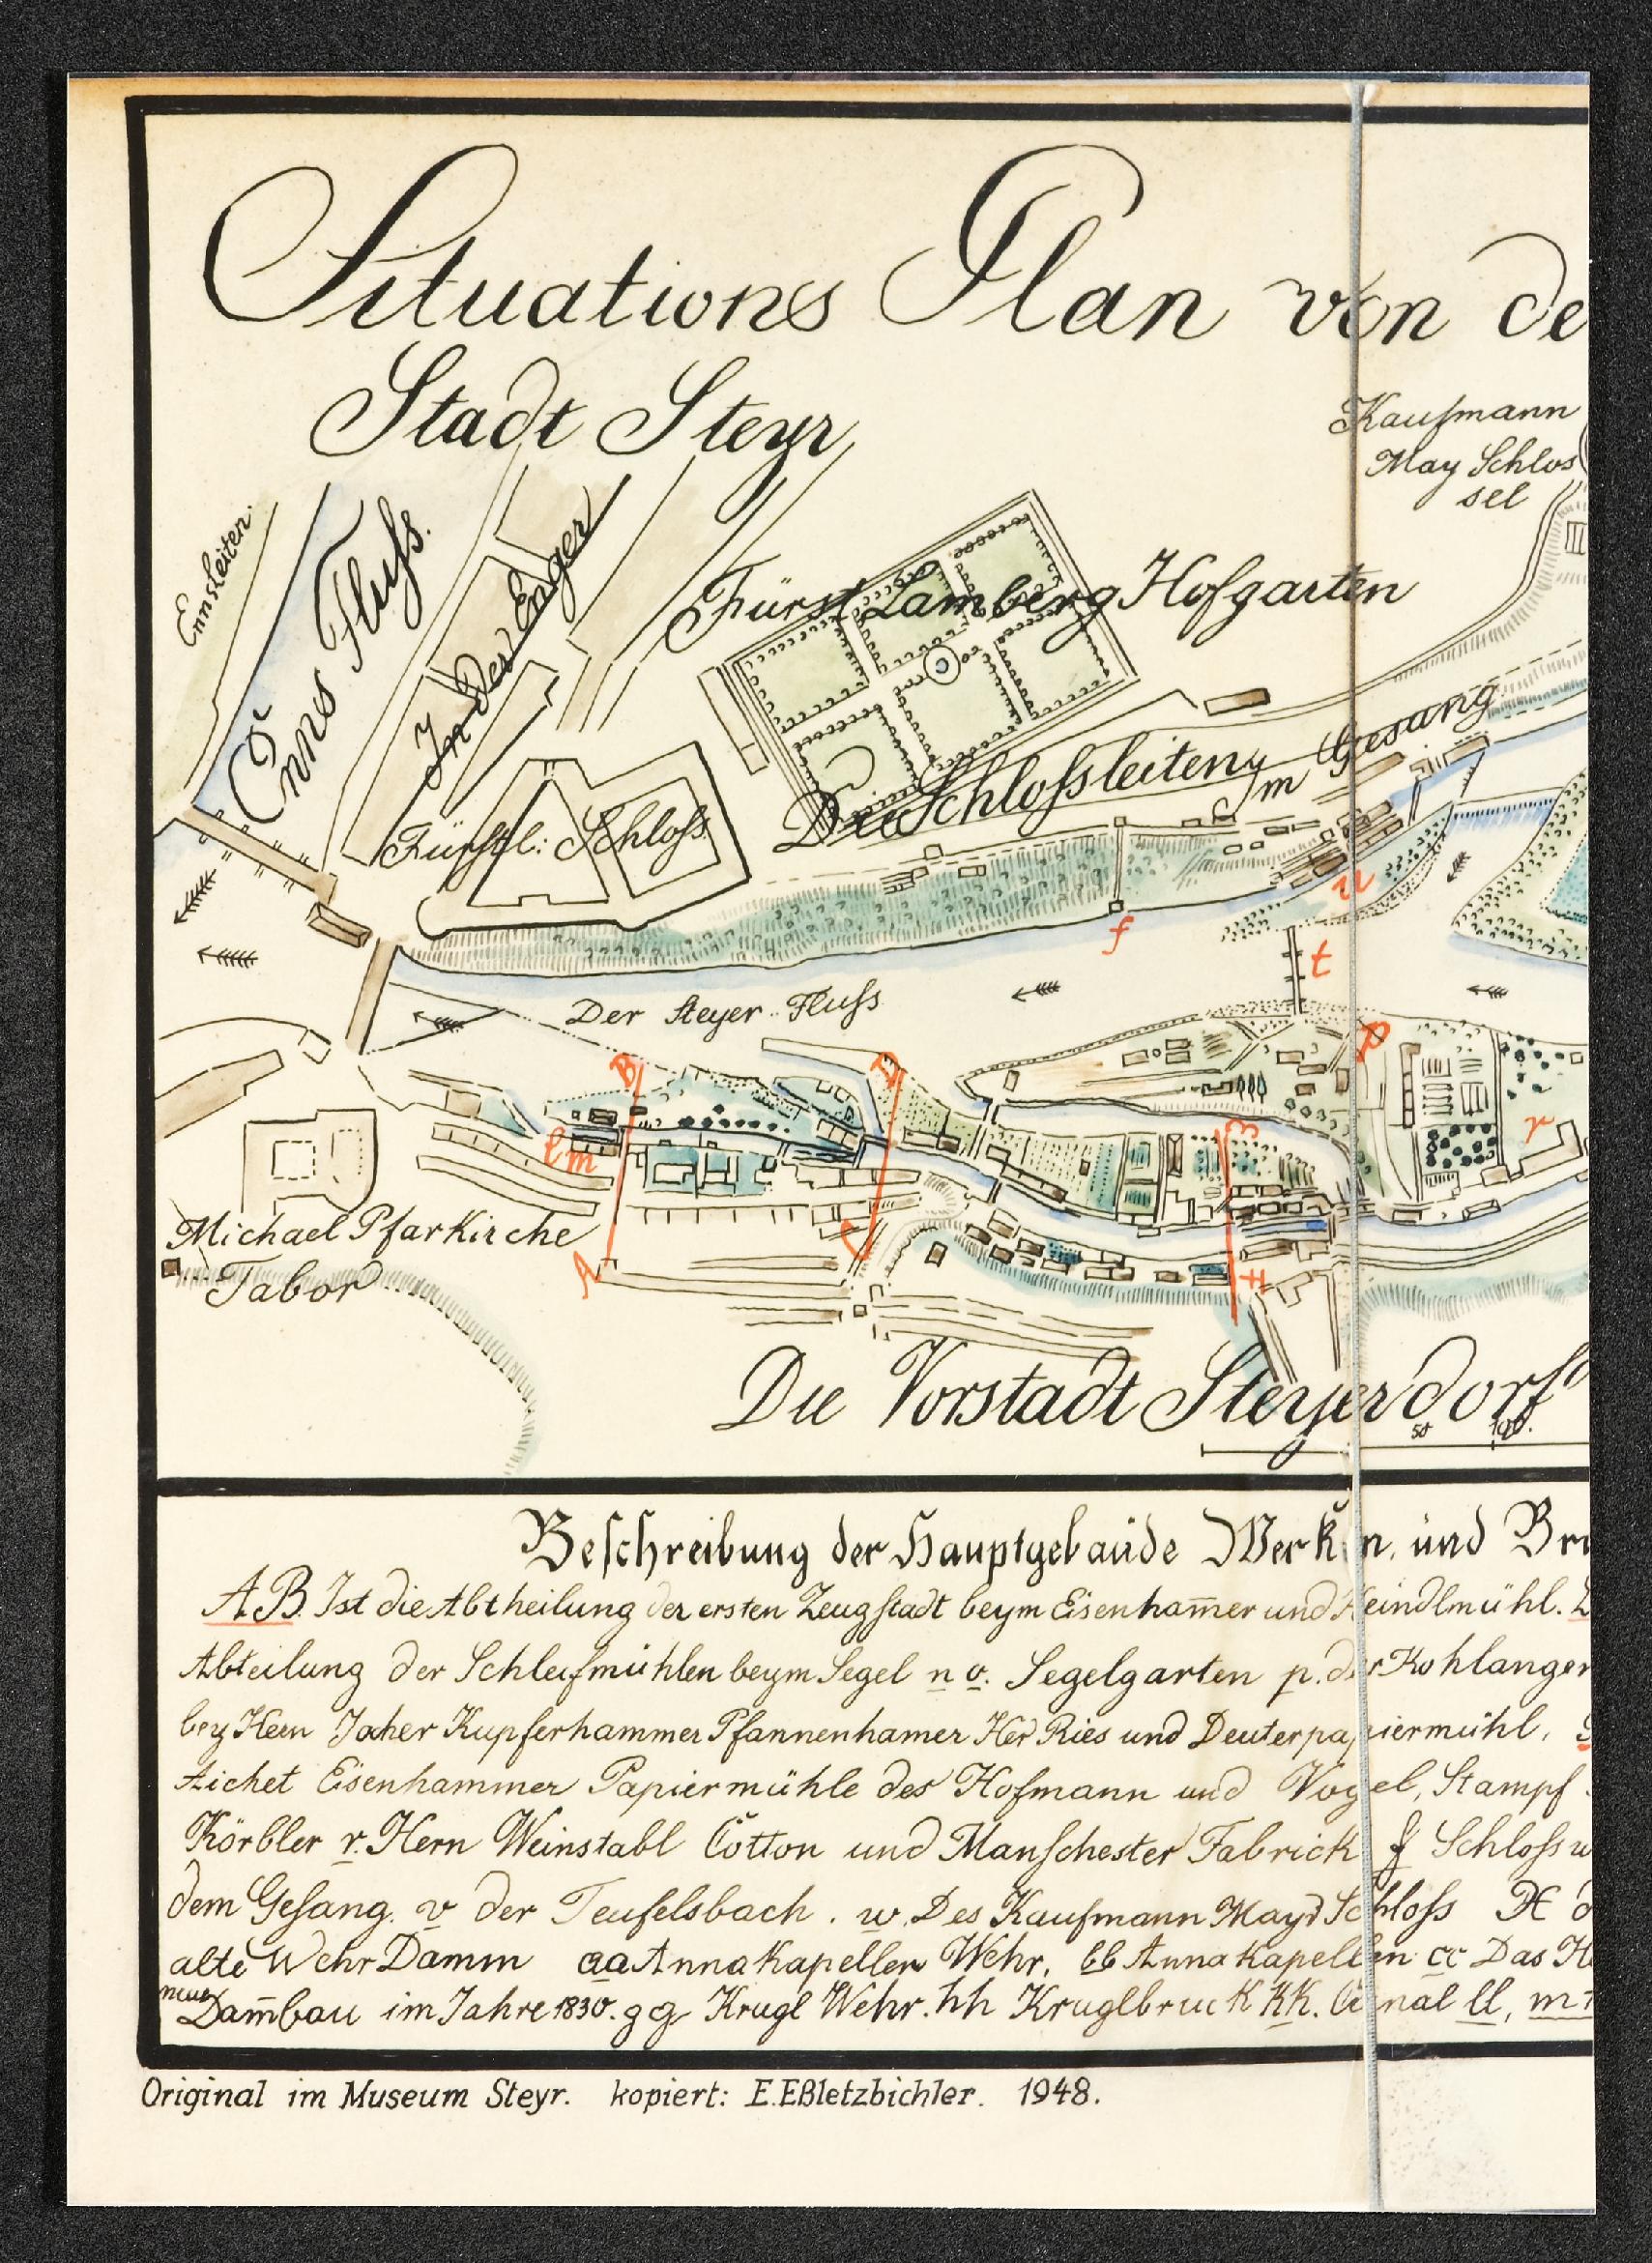 Situations Plan von de
Stadt Steyr
Kaufmann
May Schlos
sel
Ennsleiten.
Enns Fluſs.
In der Enger
Fürst Lamberg Hofgarten
Die Schloſsleiten
Im Gesang
Fürstl: Schloſs
u
f
t
Der Steyer Fluſs
B
D
P
l m
r
3
A
C
Michael Pfarkirche
Tabor
Die Vorstadt Steyerdorf
50 100.
Beſchreibung der Hauptgebaüde Werken, und Bru
A.B. Ist die Abtheilung der ersten Zeugſtadt beym Eisenham̄er und Heindlmühl.
Abteilung der Schleifmühlen beym Segel n o. Segelgarten p. der Kohlanger
bey Hern Jocher Kupferhammer Pfannenhamer Her Ries und Deuterpapiermühl,
Aichet Eisenhammer Papiermühle des Hofmann und Vogel, Stampf
Körbler r. Hern Weinstabl Cotton und Manſchester Fabrick f Schloſs w
dem Geſang. v der Teufelsbach. w. Des Kaufmann Mayr Schloſs X d
alte Wehr Damm aa Annakapellen Wehr, bb Annakapellen cc Das H
neue
Dam̄bau im Jahre 1830. gg Krugl Wehr. hh Kruglbruck kk. Canal ll, m
Original im Museum Steyr. kopiert: E.Eßletzbichler. 1948.